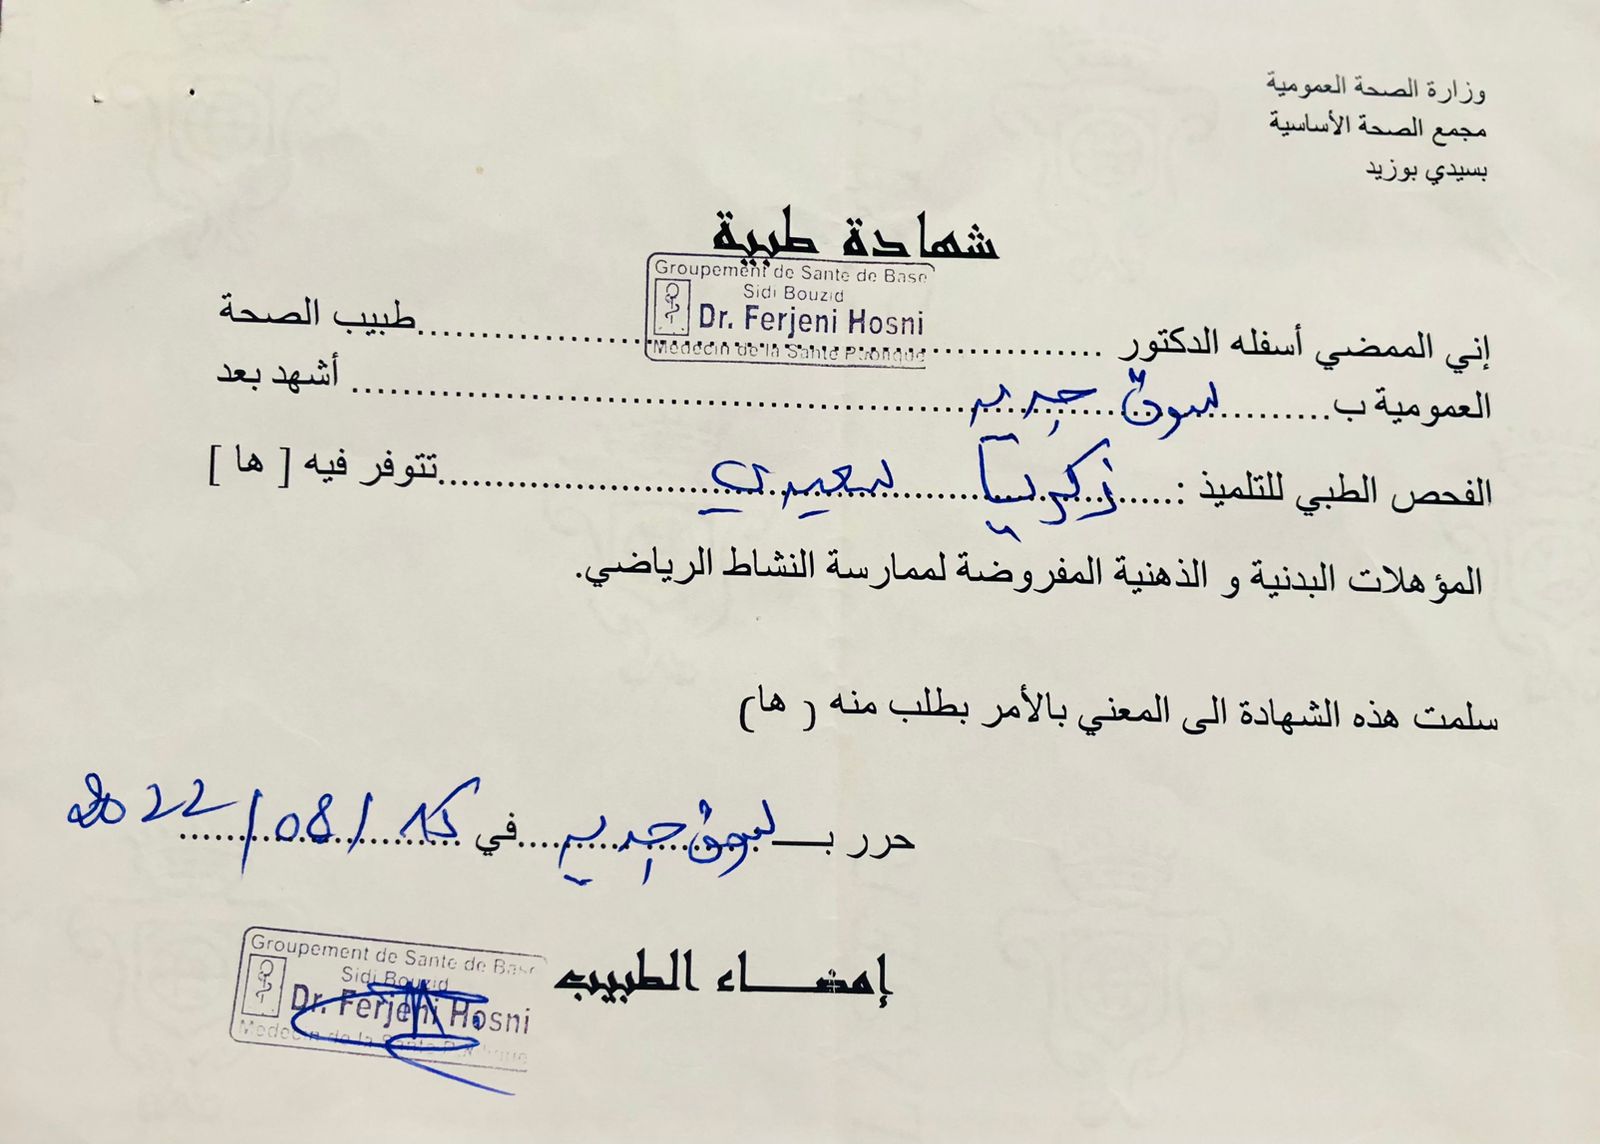 وزارة الصحة العمومية
مجمع الصحة الأساسية
بسيدي بوزيد
شهادة طبية
Groupement de Sante de Base
Sidi Bouzid
Dr. Ferjeni Hosni
Medecin de la Sante Publique
إني الممضي أسفله الدكتور ........................ طبيب الصحة
العمومية ب........ سوق جديد ........................ أشهد بعد
الفحص الطبي للتلميذ :...... زكريا سعيدي ........................تتوفر فيه [ ها ]
المؤهلات البدنية و الذهنية المفروضة لممارسة النشاط الرياضي.
سلمت هذه الشهادة الى المعني بالأمر بطلب منه ( ها)
حرر بـ سوق جديد ......في /08/2022
إمضاء الطبيب
Groupement de Sante de Base
Sidi Bouzid
Dr. Ferjeni Hosni
Medecin de la Sante Publique